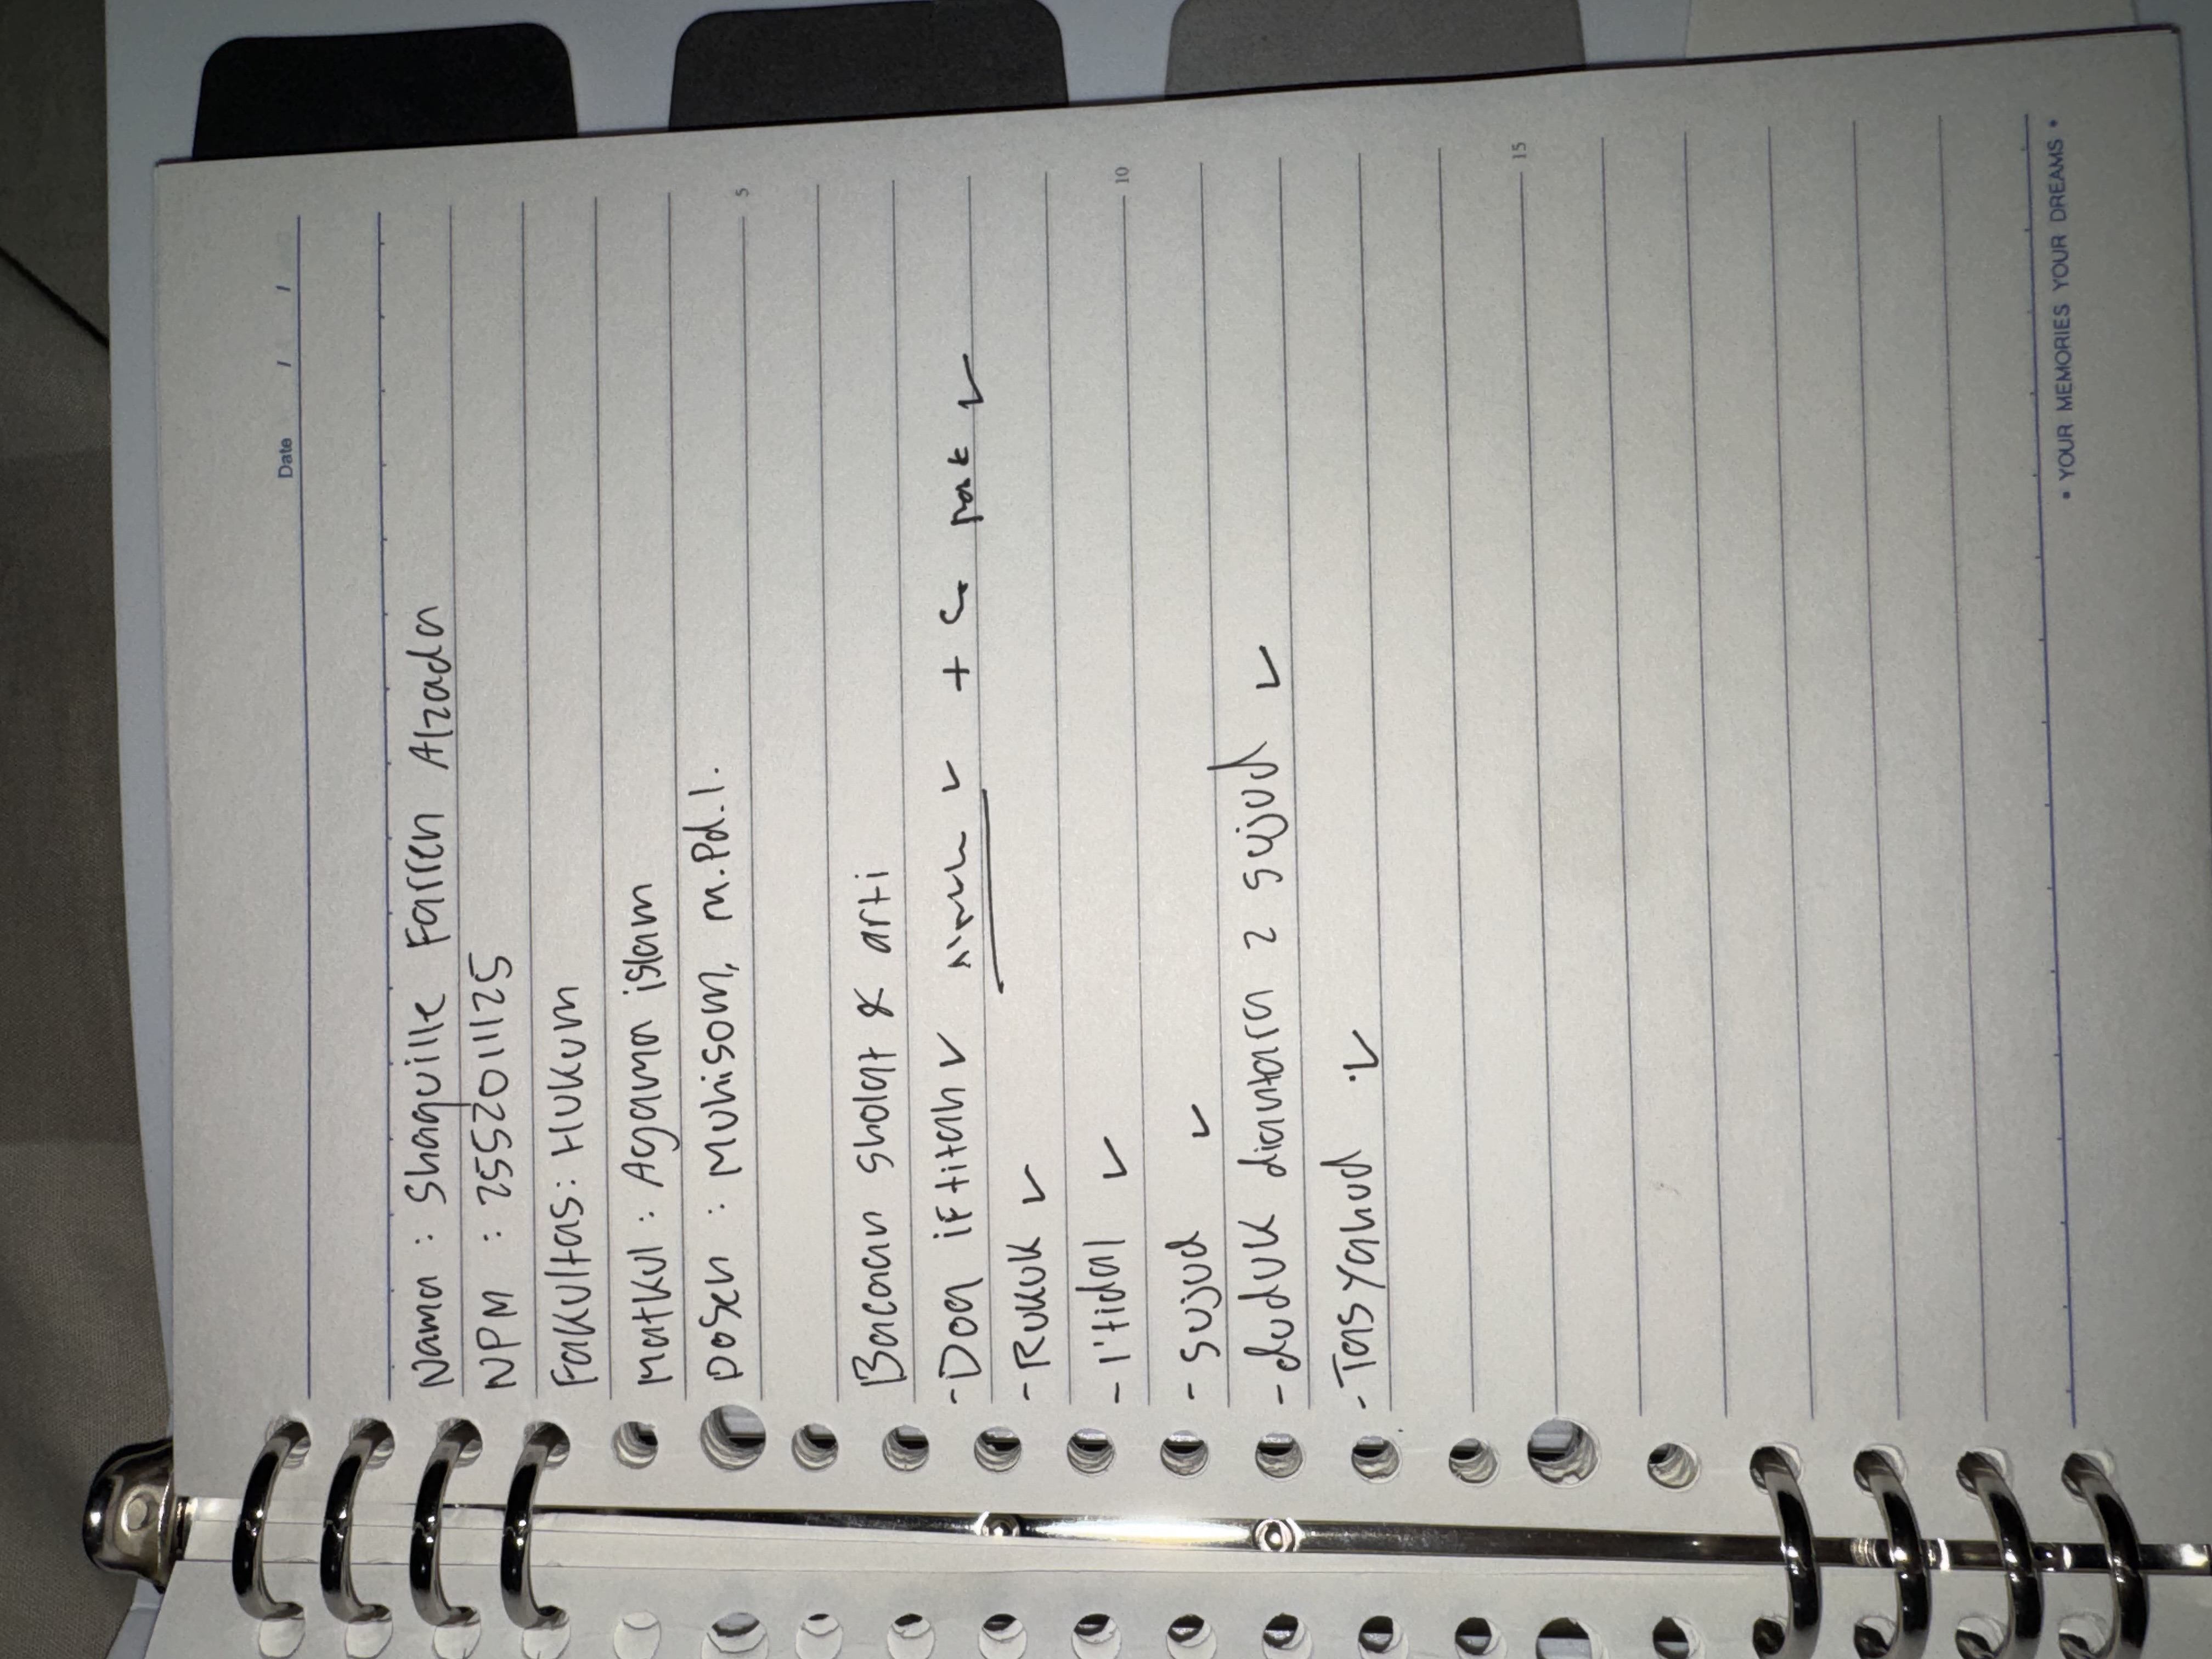 Date / /
Nama : Shaquille Farren Alzada
NPM : 2552011125
Fakultas: Hukum
Matkul : Agama islam
Dosen : Muhisom, M.Pd.I.
5
Bacaan sholat & arti
- Doa iftitah ✓ ✓ + ✓
- Rukuk ✓
- I'tidal ✓
10
- Sujud ✓
- duduk diantara 2 sujud ✓
- Tasyahud ✓
15
• YOUR MEMORIES YOUR DREAMS •